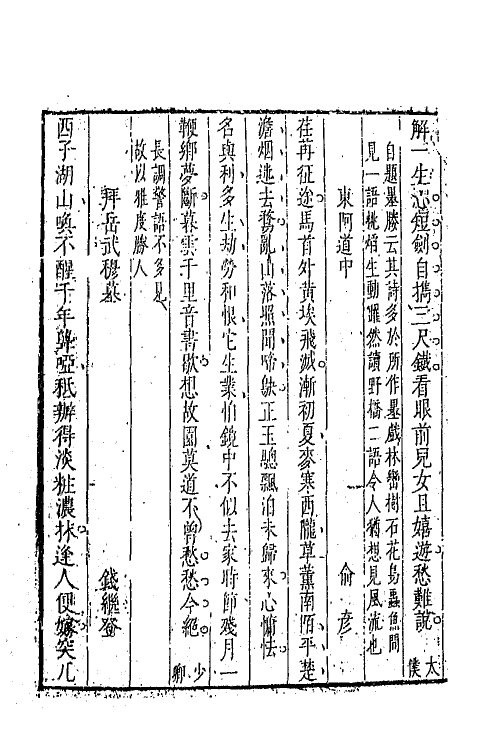 解一生心短劍自擕三尺鐵看眼前兒女且嬉遊愁難說太僕
自題墨勝云其詩多於所作墨戲林巒樹石花鳥蟲魚間
見一語桃㛹生動躍然讀野橋二語令人猶想見風流也
東阿道中　俞彥
荏苒征途馬首外黃埃飛滅漸初夏麥寒西隴草薰南陌平楚
澹烟迷去鶩亂山落照聞啼鴂正玉驄飄泊未歸來心慵怯
名與利多生劫勞和恨它生業怕鏡中不似去家時節殘月一
鞭鄉夢斷暮雲千里音書歇想故園莫道不曾愁愁今絕少卿
長調警語不多見
故以雅度勝人
拜岳武穆墓　錢繼登
西子湖山喚不醒千年聾啞秪辦得淡粧濃抹逢人便嫁笑几